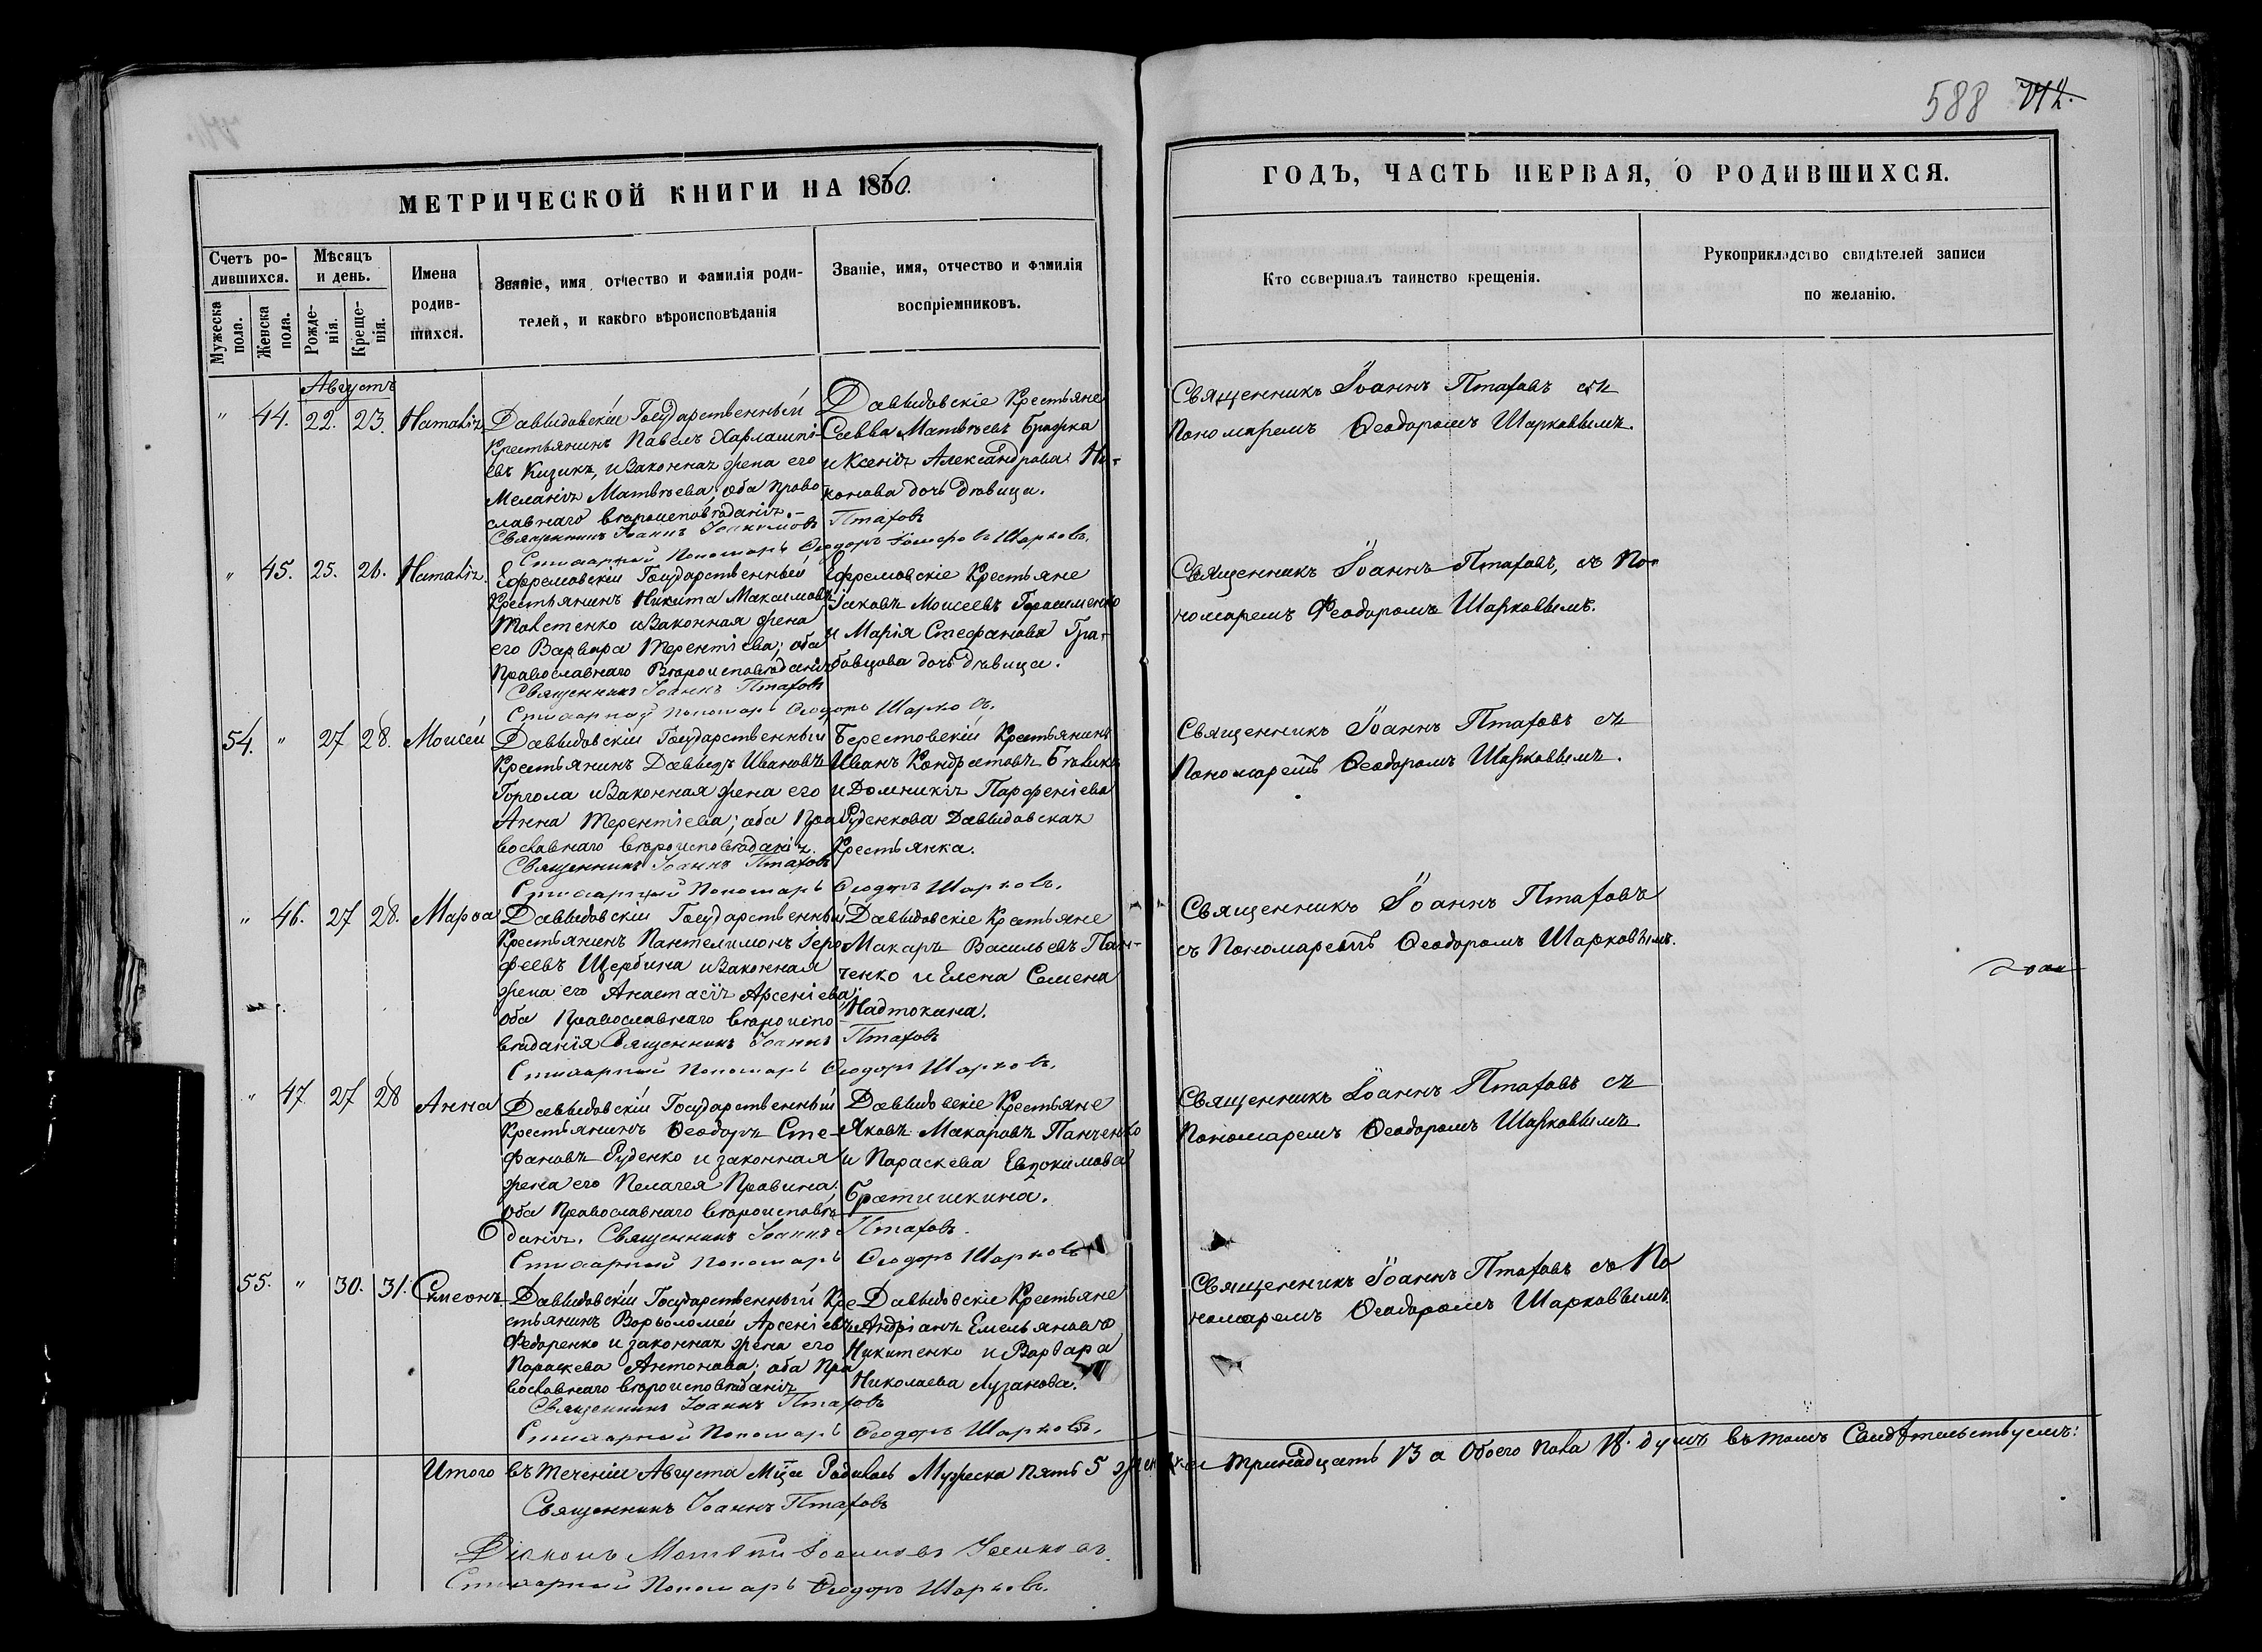 588 712.
МЕТРИЧЕСКОЙ КНИГИ НА 1860.
Счетъ ро-
дившихся.
Мужеска
пола.
Женска
пола.
Мѣсяцъ
и день.
Рожде-
нія.
Креще-
нія.
Имена
родив-
шихся.
Званіе, имя, отчество и фамилія роди-
телей, и какого вѣроисповѣданія
Званіе, имя, отчество и фамилія
воспріемниковъ.
ГОДЪ, ЧАСТЬ ПЕРВАЯ, О РОДИВШИХСЯ.
Кто совершалъ таинство крещенія.
Рукоприкладство свидѣтелей записи
по желанію.
Августъ
" 44. 22. 23. Наталія
Давыдовскій Государственный
Крестьянинъ Павелъ Харлампі-
евъ Кизикъ, и законная жена его
Меланія Матвѣева; оба право-
славнаго вѣроисповѣданія.
Давыдовскіе Крестьяне
Савва Матвѣевъ Бражка
и Ксенія Александрова Но-
конова дочь дѣвица.
Священникъ Іоаннъ Птаховъ
Стихарный Пономарь Ѳеодоръ Шарковъ.
Священникъ Іоаннъ Птаховъ съ
Пономаремъ Ѳеодоромъ Шарковымъ.
" 45. 25. 26. Наталія.
Ефремовскій Государственный
Крестьянинъ Никита Максимовъ
Толстенко и законная жена
его Варвара Терентіева; оба
Православнаго Вѣроисповѣданія
Ефремовскіе Крестьяне
Іаковъ Моисеевъ Герасименко
и Марія Стефанова Гра-
бовцова дочь дѣвица.
Священникъ Іоаннъ Птаховъ
Стихарный Пономарь Ѳеодоръ Шарковъ.
Священникъ Іоаннъ Птаховъ, съ По-
номаремъ Феодоромъ Шарковымъ.
54. " 27 28. Моисей
Давыдовскій Государственный
Крестьянинъ Давыдъ Ивановъ
Горгола и законная жена его
Анна Терентіева; оба Пра
вославнаго вѣроисповѣданія.
Берестовскій Крестьянинъ
Иванъ Кондратовъ Бѣликъ
и Домникія Парфеніева
Руденкова Давыдовская
Крестьянка.
Священникъ Іоаннъ Птаховъ
Стихарный Пономарь Ѳеодоръ Шарковъ.
Священникъ Іоаннъ Птаховъ съ
Пономаремъ Ѳеодоромъ Шарковымъ.
" 46. 27 28. Марѳа
Давыдовскій Государственный
Крестьянинъ Пантелимонъ Іеро-
феевъ Щербина и законная
жена его Анастасія Арсеніева;
оба Православнаго вѣроиспо
вѣданія
Давыдовскіе Крестьяне
Макаръ Васильевъ Пан-
ченко и Елена Семена
Надтокина.
Священникъ Іоаннъ Птаховъ
Стихарный Пономарь Ѳеодоръ Шарковъ.
Священникъ Іоаннъ Птаховъ
съ Пономаремъ Ѳеодоромъ Шарковымъ.
" 47 27 28 Анна
Давыдовскій Государственный
Крестьянинъ Ѳеодоръ Сте-
фановъ Руденко и законная
жена его Пелагея Правина
Оба Православнаго вѣроисповѣ
данія.
Давыдовскіе Крестьяне
Яковъ Макаровъ Панченко
и Параскева Евдокимова
Братишкина.
Священникъ Іоаннъ Птаховъ.
Стихарный Пономарь Ѳеодоръ Шарковъ
Священникъ Іоаннъ Птаховъ съ
Пономаремъ Ѳеодоромъ Шарковымъ
55. " 30. 31. Симеонъ.
Давыдовскій Государственный Кре
стьянинъ Варѳоломей Арсеніевъ
Федоренко и законная жена его
Параскева Антонова; оба Пра
вославнаго вѣроисповѣданія
Давыдовскіе Крестьяне
Андріанъ Емельяновъ
Никитенко и Варвара
Николаева Лузанова.
Священникъ Іоаннъ Птаховъ
Стихарный Пономарь Ѳеодоръ Шарковъ.
Священникъ Іоаннъ Птаховъ съ По
номаремъ Ѳеодоромъ Шарковымъ.
Итого въ теченіи Августа Мца Родилось Мужеска пять 5 женска тринадцать 13 а Обоего пола 18. душъ въ томъ Свидѣтельствуемъ:
Священникъ Іоаннъ Птаховъ
Діаконъ Матвѣй
Стихарный Пономарь Ѳеодоръ Шарковъ.